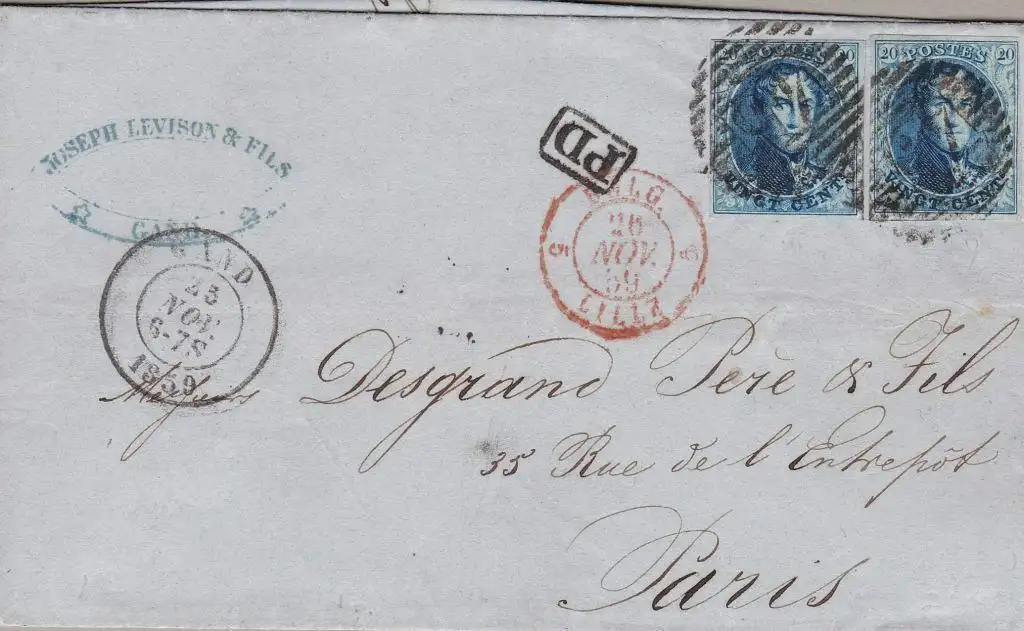 JOSEPH LEVISON & FILS
GAND
GAND
25
NOV.
6-7S
1859
PD
BELG.
26
NOV.
59
5 5
LILLE
20 POSTES 20
VINGT CENT.
20 POSTES 20
VINGT CENT.
Messieurs Desgrand Père & Fils
35 Rue de l'Entrepôt
Paris